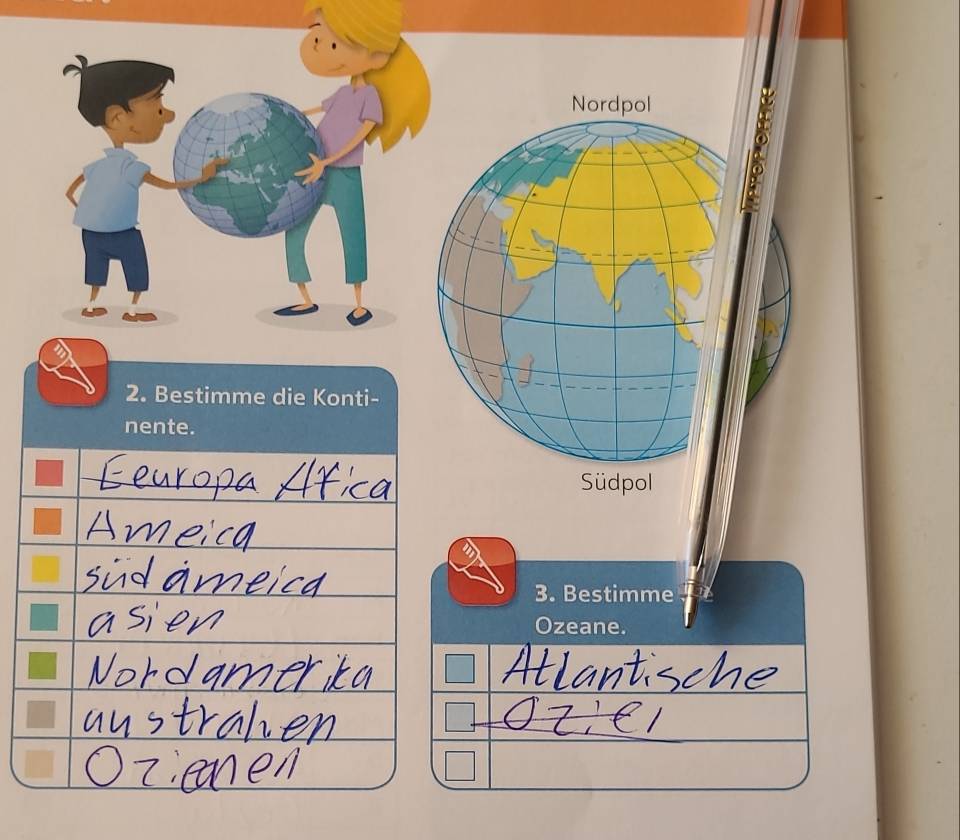 Nordpol
TIPTOP OFFICE
Südpol
2. Bestimme die Konti-
nente.
Eeuropa Africa
Ameica
südameica
asien
Nordamerika
australien
Ozienen
3. Bestimme
Ozeane.
Atlantische
Oziei